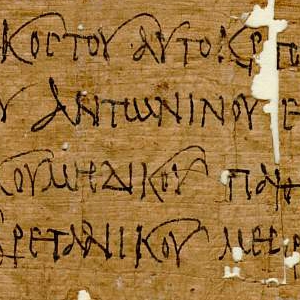 κοστου αυτοκρ
υ αντωνινου ε
κου μηδικου πα
βρετανικου με